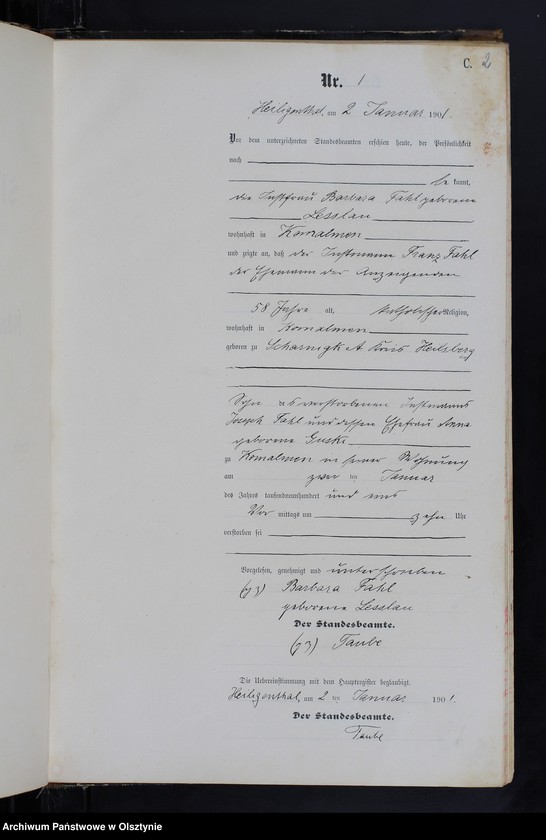 C. 2
Nr. 1
Heiligenthal, am 2 Januar 1901.
Vor dem unterzeichneten Standesbeamten erschien heute, der Persönlichkeit
nach
be kannt,
die Instfrau Barbara Fahl geborene
Lesslau
wohnhaft in Komalmen
und zeigte an, daß der Instmann Franz Fahl
der Ehemann der Anzeigenden
58 Jahre alt, katholischer Religion,
wohnhaft in Komalmen
geboren zu Scharnigk A Kreis Heilsberg
Sohn des verstorbenen Instmanns
Joseph Fahl und dessen Ehefrau Anna
geborene Guski
zu Komalmen in seiner Wohnung
am zwei ten Januar
des Jahres tausendneunhundert und eins
Vor mittags um zehn Uhr
verstorben sei
Vorgelesen, genehmigt und unterschrieben
(gz) Barbara Fahl
geborene Lesslau
Der Standesbeamte.
(gz) Taube
Die Uebereinstimmung mit dem Hauptregister beglaubigt.
Heiligenthal, am 2 ten Januar 1901.
Der Standesbeamte.
Taube
Archiwum Państwowe w Olsztynie